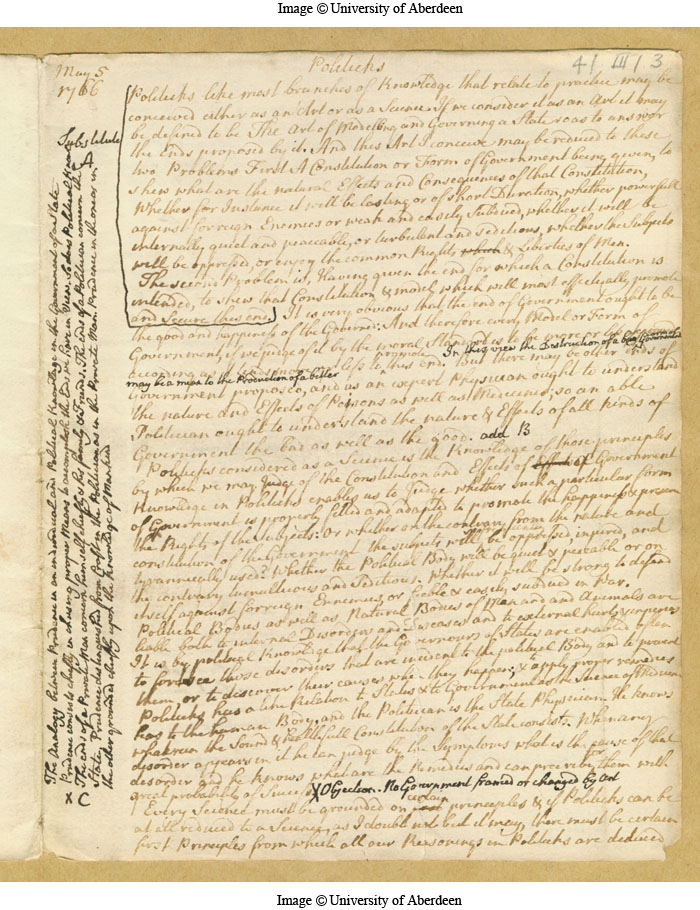 Image © University of Aberdeen
4/III/3
May 5
1766
Politicks
Politicks like most branches of Knowledge that relate to practice may be
conceived either as an Art or as a Science. If we consider it as an Art it may
be defined to be The Art of Modelling and Governing a State so as to answer
the Ends proposed by it. And this Art I conceive may be reduced to these
two Problems First A Constitution or Form of Government being given, to
shew what are the natural Effects and Consequences of that Constitution,
Whether for Instance it will be lasting or of short Duration, whether powerfull
against forreign Enemies or weak and easily Subdued, whether it will be
internally quiet and peaceable, or turbulent and seditious, whether the Subjects
will be oppressed, or enjoy the common Rights which & Liberties of Men.
The second Problem is, Having given the end for which a Constitution is
intended, to shew that Constitution & model which will most effectually promote
and Secure this end. It is very obvious that the end of Government ought to be
the good and happiness of the Governed. And therefore every Model or Form of
Government, if we judge of it by the moral Standard is the more or less
according as it less to this end. But there may be other ends of
promote
In this view the Destruction of a
may be a mean to the Production of a better
Government proposed, and as an expert Physician ought to understand
the nature and Effects of Poisons as well as Medicines, so an able
Politician ought to understand the nature & Effects of all kinds of
Government the bad as well as the good. add B
Politicks considered as a Science is the Knowledge of those principles
by which we may Judge of the Constitution and Effects of Effects of Government
Knowledge in Politicks enables us to judge whether such a particular form
of Government is properly fitted and adapted to promote the happiness & preserve
the Rights of the subjects: Or whether on the contrary from the nature and
constitution of the Government the subjects will be oppressed, injured, and
tyrannically used. Whether the Political Body will be quiet & peaceable or on
the contrary tumultuous and Seditious. Whether it will be strong to defend
itself against forreign Ennemies, or feeble & easily subdued in War.
Political Bodies as well as Natural Bodies of Men and Animals are
liable both to internal Disorders and Diseases and to external hurts &
It is by political Knowledge that the Governours of States are enabled often
to foresee those disorders that are incident to the political Body and to prevent
them or to discover their causes when they happen; & apply proper remedies
Politicks has a like Relation to States & to Government as the Science of Medicine
has to the human Body, and the Politician is the State Physician. He knows
wherein the Sound & healthfull Constitution of the State consists. When any
disorder appears in it he can judge by the Symptoms what is the cause of that
disorder and he knows what are the Remedies and can prescribe them with
great probability of Success X Objection. No Government framed or changed by Art
certain
Every Science must be grounded on principles & if Politicks can be
at all reduced to a Science, as I doubt not but it may, there must be certain
first Principles from which all our Reasonings in Politicks are deduced
Substitute A
The Analogy between Prudence in an individual and Political Knowledge in the Government of a State
Prudence consists chiefly in chusing proper Means to accomplish the End we have in view. So does Political Knowledge
The ends of a Private Man concern himself chiefly or his family & Friends. The End of a Politician concern the
State. Prudence distinguished from Craft in the Politician as in the Private Man. Prudence in the one as in
the other grounded chiefly upon the Knowledge of Mankind
X C
Image © University of Aberdeen